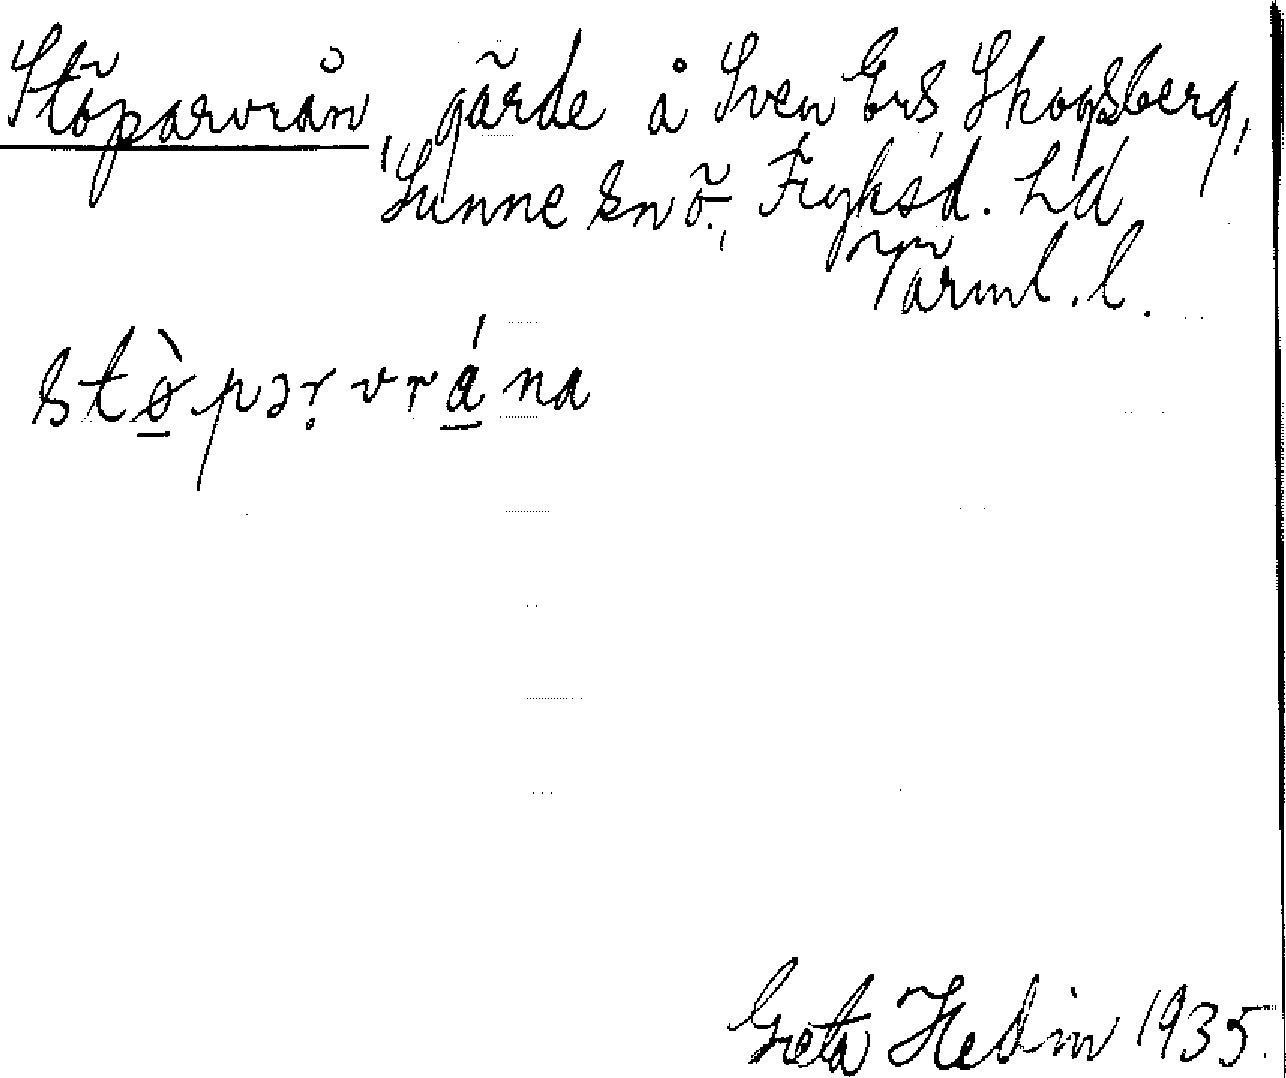 Stöparvrån, gärde å Sven Ers, Skogsberg,
Sunne sn ö., Fryksd. hd
Värml. l.
stø̀pər̥vrána
Greta Hedin 1935.